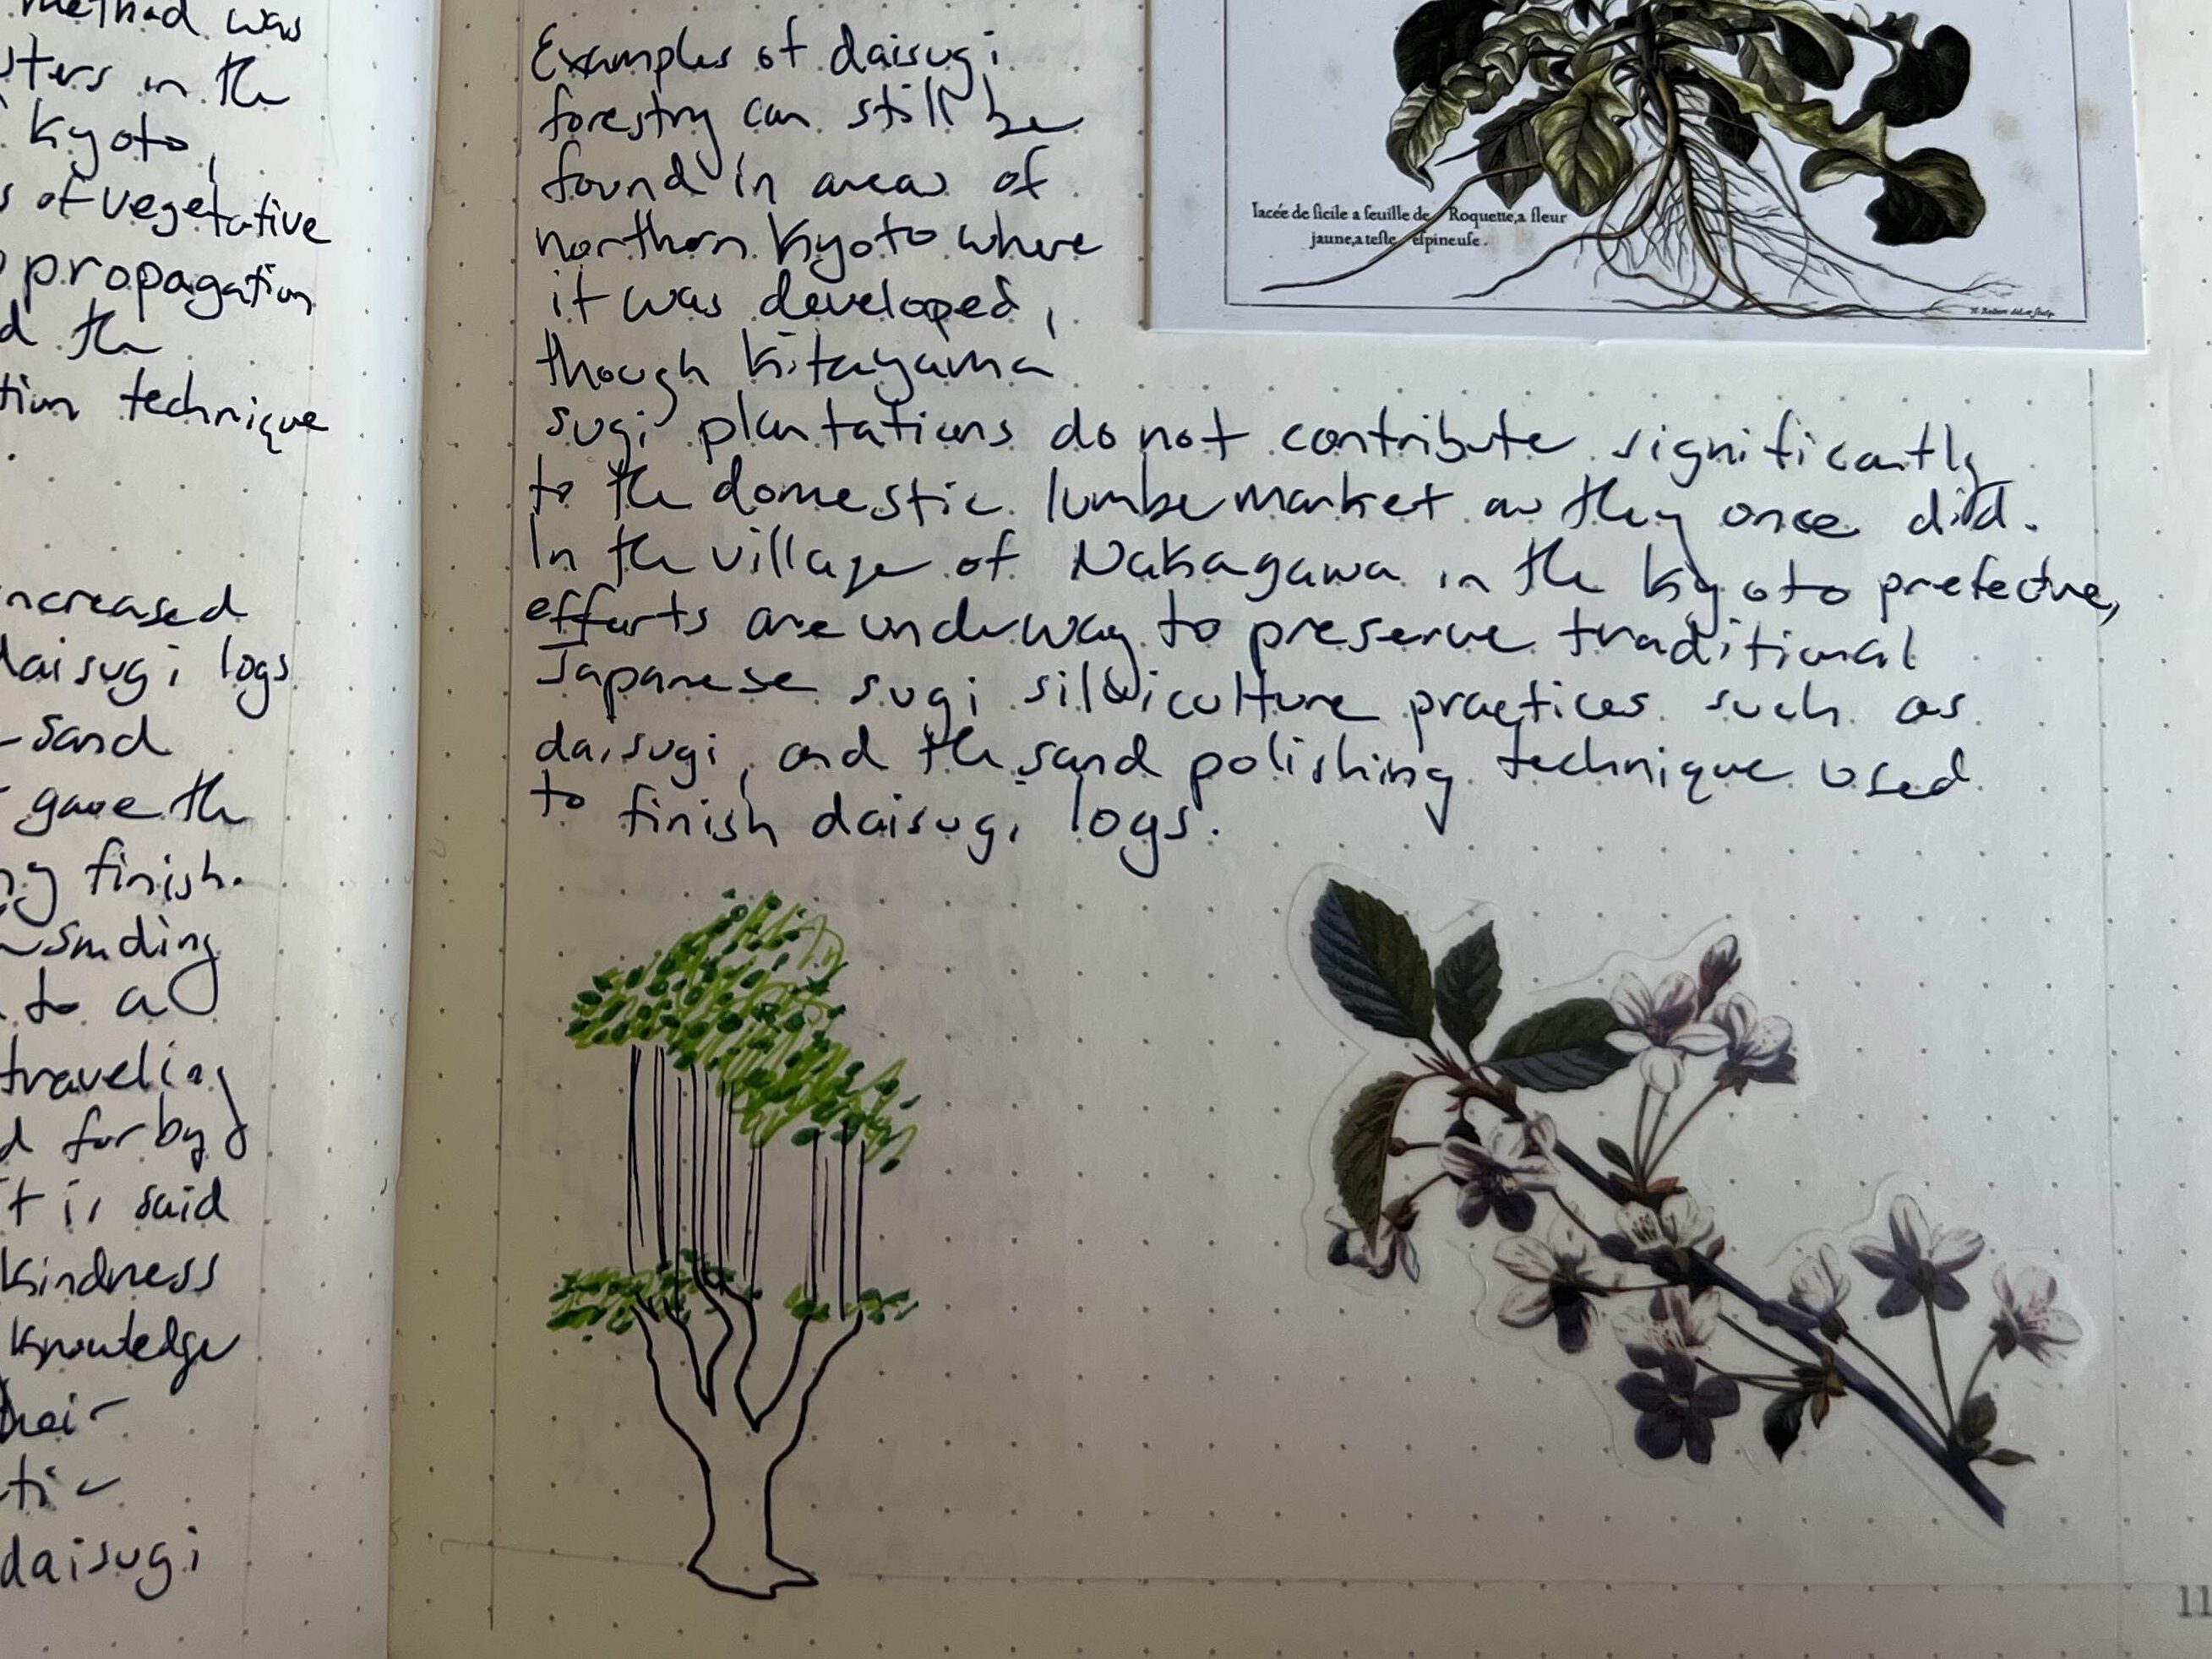 method was
sters in the
Kyoto,
s of vegetative
propagation
d the
tion technique
ncreased
daisugi logs
-sand
gave the
ng finish.
sanding
to a
traveling
d for by
it is said
kindness
knowledge
their
daisugi
Examples of daisugi
forestry can still be
found in areas of
northern Kyoto where
it was developed,
though Kitayama
sugi plantations do not contribute significantly
to the domestic lumber market as they once did.
In the village of Nakagawa in the Kyoto prefecture,
efforts are underway to preserve traditional
Japanese sugi silviculture practices such as
daisugi, and the sand polishing technique used
to finish daisugi logs.
Iacée de sicile a feuille de Roquette, a fleur
jaune, a teste espineuse.
11